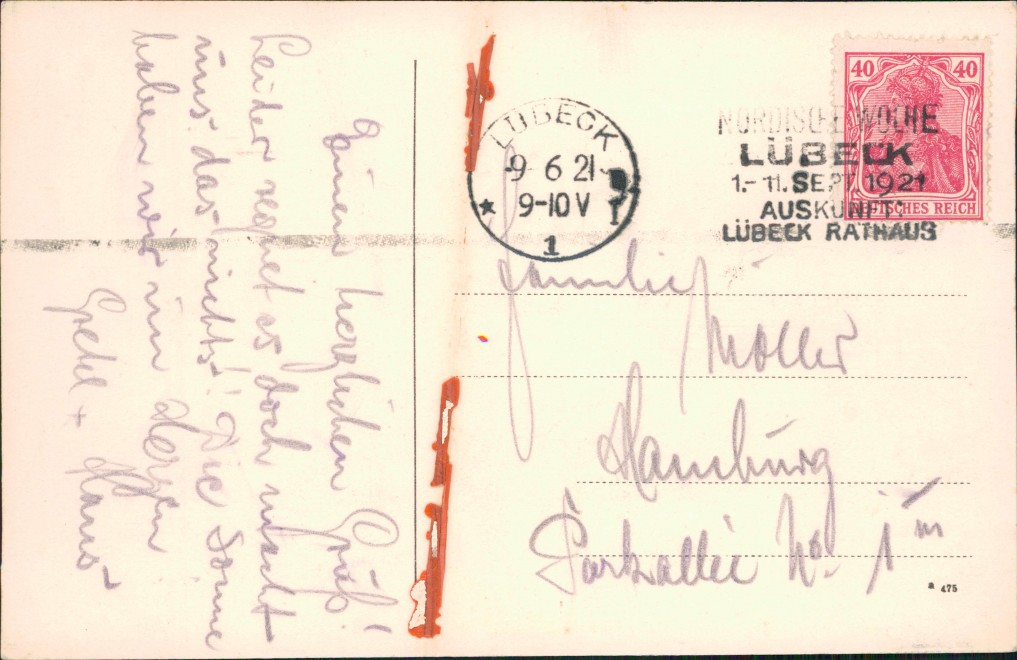 Einen herzlichen Gruß!
Leider regnet es doch macht
uns das nichts! Die Sonne
haben wir im Herzen
Gretel + Hans
LÜBECK
9-6 21
9-10 V
1
NORDISCHE WOCHE
LÜBECK
1.-11. SEPT 1921
AUSKUNFT:
LÜBECK RATHAUS
40 40
DEUTSCHES REICH
Familie
Möller
Hamburg
Parkallee No. 1
a 475